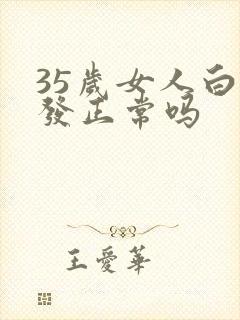 35歲女人白
發正常吗
王愛華